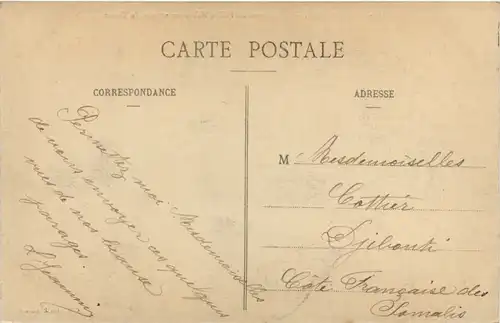 CARTE POSTALE
CORRESPONDANCE
Permettez moi Mesdemoiselles
de vous envoyer ces quelques
vues de nos beaux
parages
ADRESSE
M Mesdemoiselles
Cottier
Djibouti
Côte Française des
Somalis